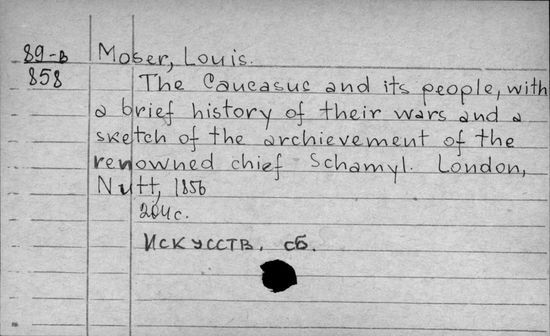 89-в Moser, Louis.
858 The Caucasus and its people, with
a brief history of their wars and a
sketch of the archievement of the
renowned chief Schamyl. London,
Nutt, 1856
204 с.
Искусств. сб.